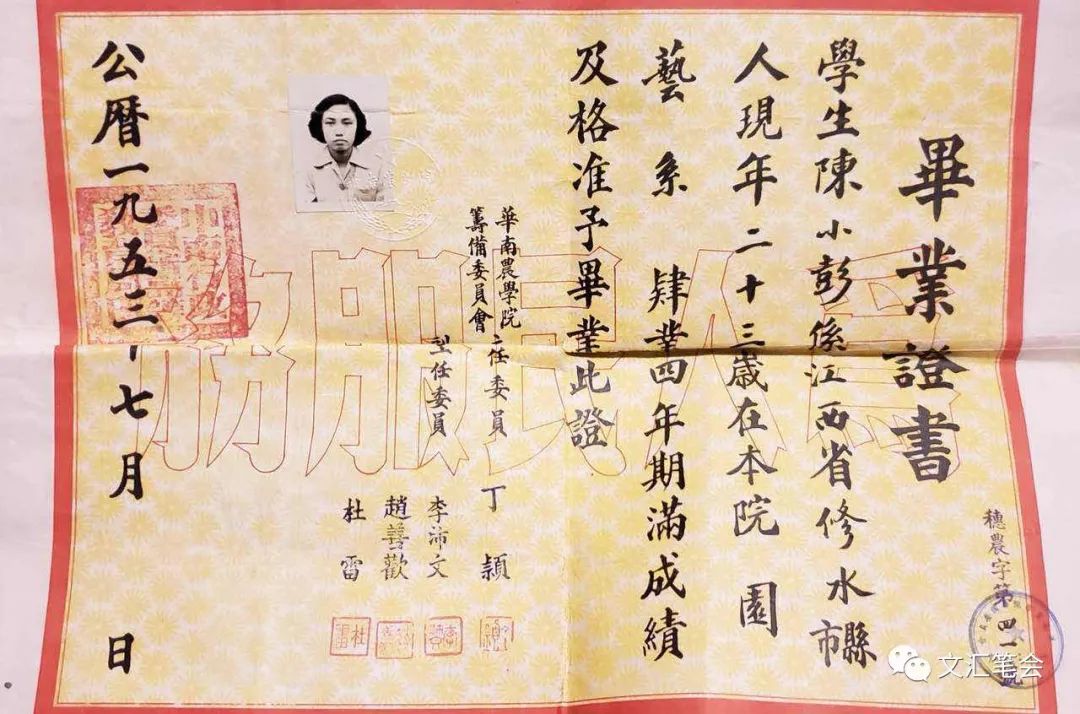 畢業證書
穗農字第四一號
學生陳小彭係江西省修水縣市
人現年二十三歲在本院園
藝系肄業四年期滿成績
及格准予畢業此證
華南農學院
籌備委員會
主任委員 丁穎
副主任委員 李沛文
趙善歡
杜雷
公曆一九五三年七月 日
為人民服務
文汇笔会